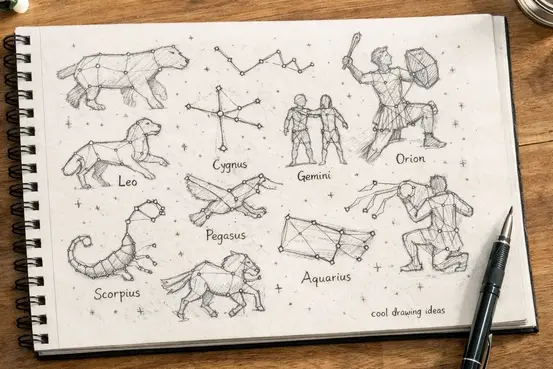 Leo
Cygnus
Gemini
Orion
Pegasus
Scorpius
Aquarius
cool drawing ideas